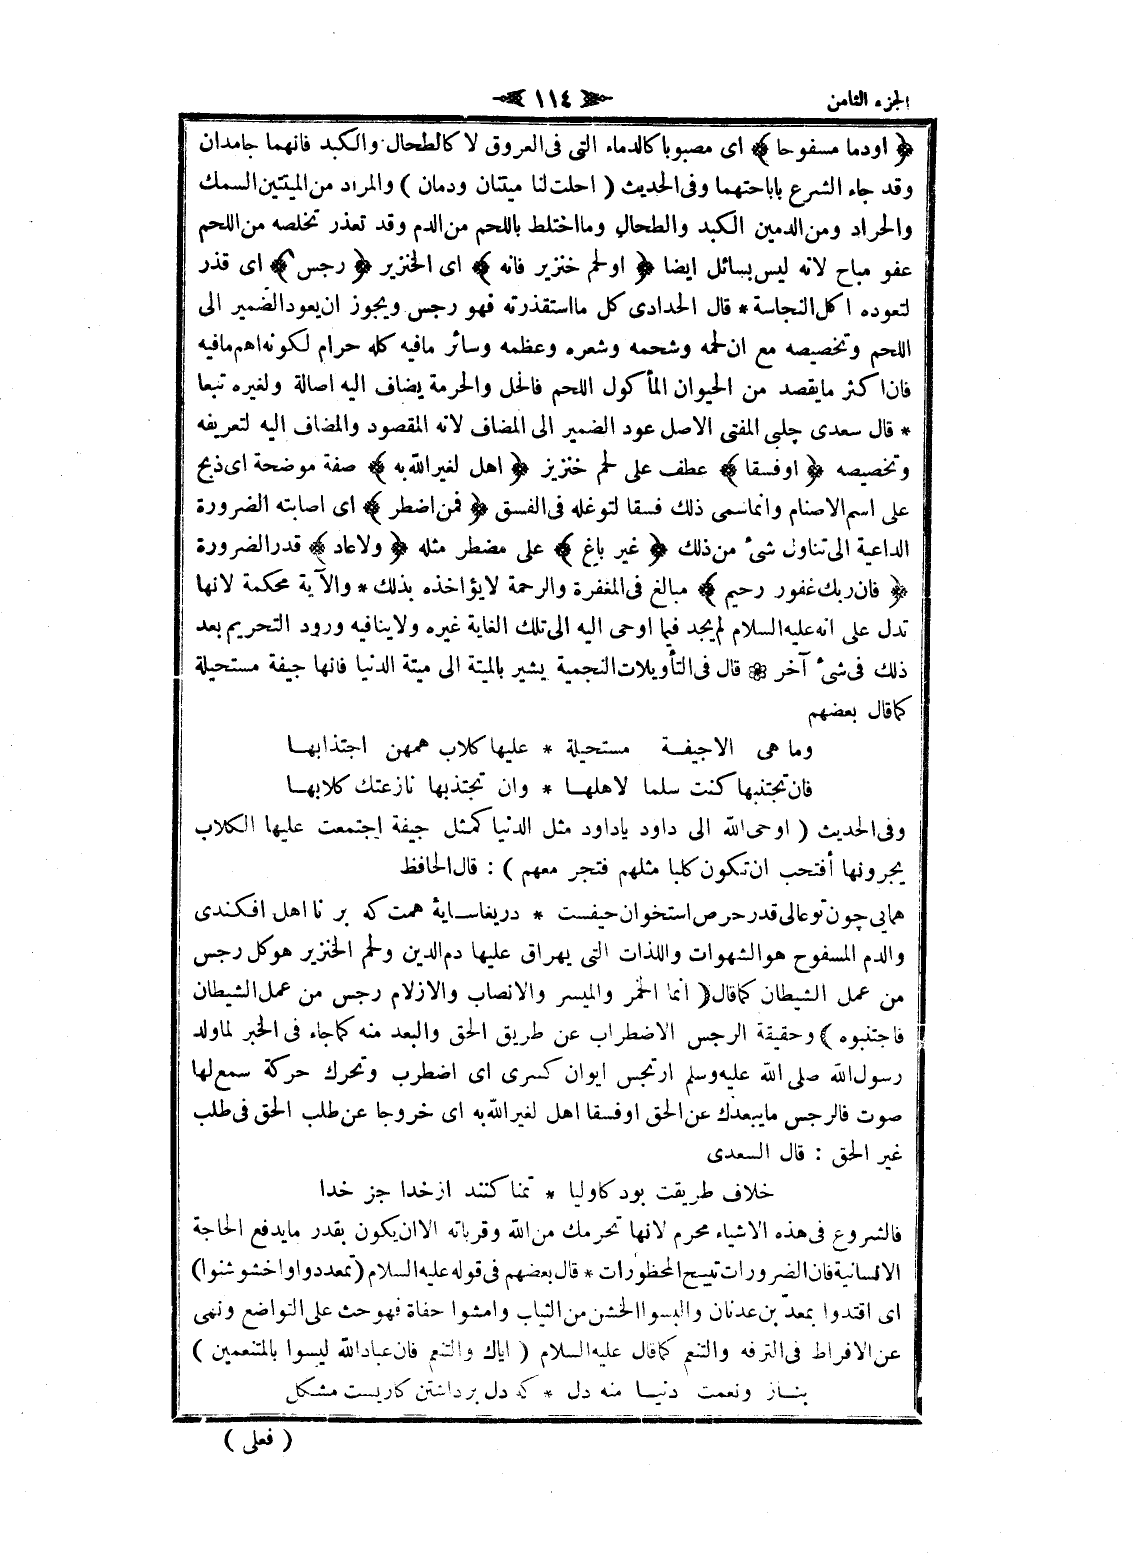 الجزء الثامن
١١٤
﴿ اودما مسفوحا ﴾ اى مصبوبا كالدماء التى فى العروق لا كالطحال والكبد فانهما جامدان
وقد جاء الشرع باباحتهما وفى الحديث ( احلت لنا ميتتان ودمان ) والمراد من الميتتين السمك
والجراد ومن الدمين الكبد والطحال وما اختلط باللحم من الدم وقد تعذر تخلصه من اللحم
عفو مباح لانه ليس بسائل ايضا ﴿ اولحم خنزير فانه ﴾ اى الخنزير ﴿ رجس ﴾ اى قذر
لتعوده اكل النجاسة * قال الحدادى كل ما استقذرته فهو رجس ويجوز ان يعود الضمير الى
اللحم وتخصيصه مع ان لحمه وشحمه وشعره وعظمه وسائر مافيه كله حرام لكونه اهم مافيه
فان اكثر مايقصد من الحيوان المأكول اللحم فالحل والحرمة يضاف اليه اصالة ولغيره تبعا
* قال سعدى چلبى المفتى الاصل عود الضمير الى المضاف لانه المقصود والمضاف اليه لتعريفه
وتخصيصه ﴿ اوفسقا ﴾ عطف على لحم خنزيز ﴿ اهل لغير الله به ﴾ صفة موضحة اى ذبح
على اسم الاصنام وانما سمى ذلك فسقا لتوغله فى الفسق ﴿ فمن اضطر ﴾ اى اصابته الضرورة
الداعية الى تناول شئ من ذلك ﴿ غير باغ ﴾ على مضطر مثله ﴿ ولاعاد ﴾ قدر الضرورة
﴿ فان ربك غفور رحيم ﴾ مبالغ فى المغفرة والرحمة لايؤاخذه بذلك * والآية محكمة لانها
تدل على انه عليه السلام لم يجد فيما اوحى اليه الى تلك الغاية غيره ولاينافيه ورود التحريم بعد
ذلك فى شئ آخر ❁ قال فى التأويلات النجمية يشير بالميتة الى ميتة الدنيا فانها جيفة مستحيلة
كماقال بعضهم
وما هى الاجيفة مستحيلة * عليها كلاب همهن اجتذابها
فان تجتنبها كنت سلما لاهلها * وان تجتذبها نازعتك كلابها
وفى الحديث ( اوحى الله الى داود ياداود مثل الدنيا كمثل جيفة اجتمعت عليها الكلاب
يجرونها أفتحب ان تكون كلبا مثلهم فتجر معهم ) : قال الحافظ
همايى چون تو عالى قدر حرص استخوان حيفست * دريغا سايۀ همت كه بر نا اهل افكندى
والدم المسفوح هو الشهوات واللذات التى يهراق عليها دم الدين ولحم الخنزير هو كل رجس
من عمل الشيطان كماقال ( انما الخمر والميسر والانصاب والازلام رجس من عمل الشيطان
فاجتنبوه ) وحقيقة الرجس الاضطراب عن طريق الحق والبعد منه كماجاء فى الخبر لماولد
رسول الله صلى الله عليه وسلم ارتجس ايوان كسرى اى اضطرب وتحرك حركة سمع لها
صوت فالرجس مايبعدك عن الحق اوفسقا اهل لغير الله به اى خروجا عن طلب الحق فى طلب
غير الحق : قال السعدى
خلاف طريقت بود كاوليا * تمنا كنند از خدا جز خدا
فالشروع فى هذه الاشياء محرم لانها تحرمك من الله وقرباته الا ان يكون بقدر مايدفع الحاجة
الانسانية فان الضرورات تبيح المحظورات * قال بعضهم فى قوله عليه السلام ( تمعددوا واخشوشنوا )
اى اقتدوا بمعد بن عدنان والبسوا الخشن من الثياب وامشوا حفاة فهو حث على التواضع ونهى
عن الافراط فى الترفه والتنعم كماقال عليه السلام ( اياك والتنعم فان عباد الله ليسوا بالمتنعمين )
بناز ونعمت دنيا منه دل * كه دل برداشتن كاريست مشكل
( فعلى )